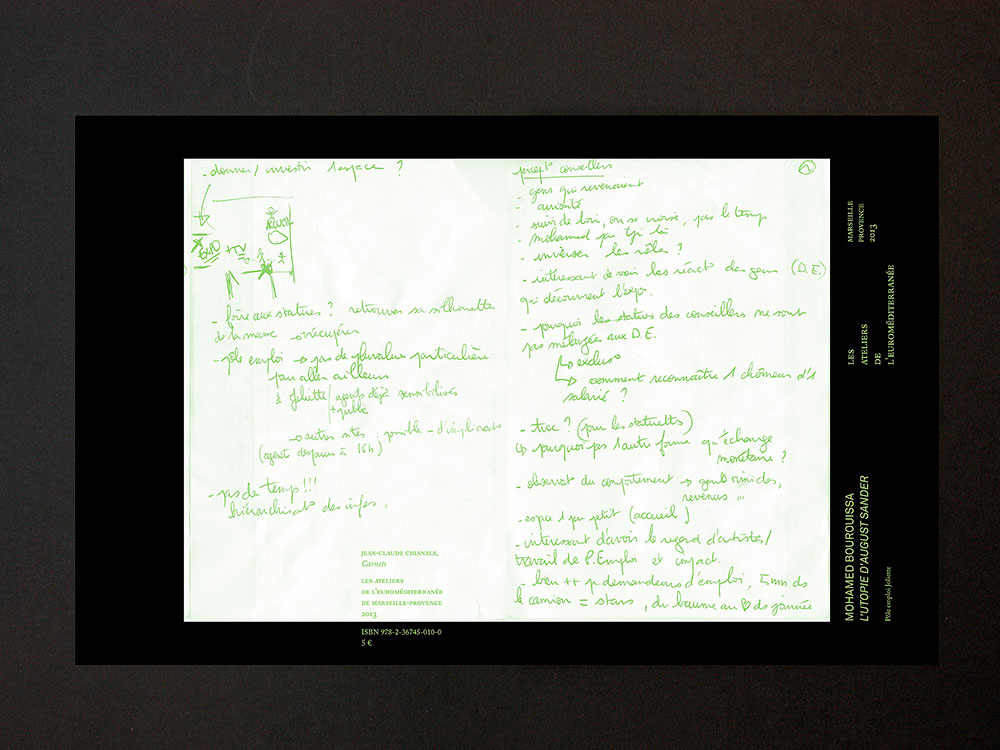 - donner / investir l'espace ?
EXPO
- foire aux statues ? retrouver sa silhouette
ds la masse → récupérer
- pôle emploi → pas de plus value particulière
par aller ailleurs
à Joliette / agents déjà sensibilisés
+ public
→ autres sites : possible - d'implicat°
(agents dispars à 16h)
- pas de temps !!!
hiérarchisat° des infos.
JEAN-CLAUDE CHIANALE,
Carnets
LES ATELIERS
DE L'EUROMÉDITERRANÉE
DE MARSEILLE-PROVENCE
2013
ISBN 978-2-36745-010-0
5 €
percept° conseillers
2
- gens qui revenaient
- curiosité
- suivi de loin, on se croise, pas le temps
- mohamed pas tjs là
- inverser les rôles ?
- intéressant de voir les réact° des gens (D.E.)
qui découvrent l'expo.
- pourquoi les statues des conseillers ne sont
pas mélangées aux D.E.
↳ exclus°
↳ comment reconnaître 1 chômeur d'1
salarié ?
- troc ? (pour les statuettes)
↳ pourquoi pas 1 autre forme qu'échange
monétaire ?
- observat° du comportement → gens timides,
revenus ...
- espace 1 peu petit (accueil)
- intéressant d'avoir le regard d'artistes /
travail de P. Emploi et impact.
- bien ++ pr demandeurs d'emploi, 5 mn ds
le camion = stars, du baume au ♡ ds journée
MARSEILLE
PROVENCE
2013
LES
ATELIERS
DE
L'EUROMÉDITERRANÉE
MOHAMED BOUROUISSA
L'UTOPIE D'AUGUST SANDER
Pôle emploi Joliette